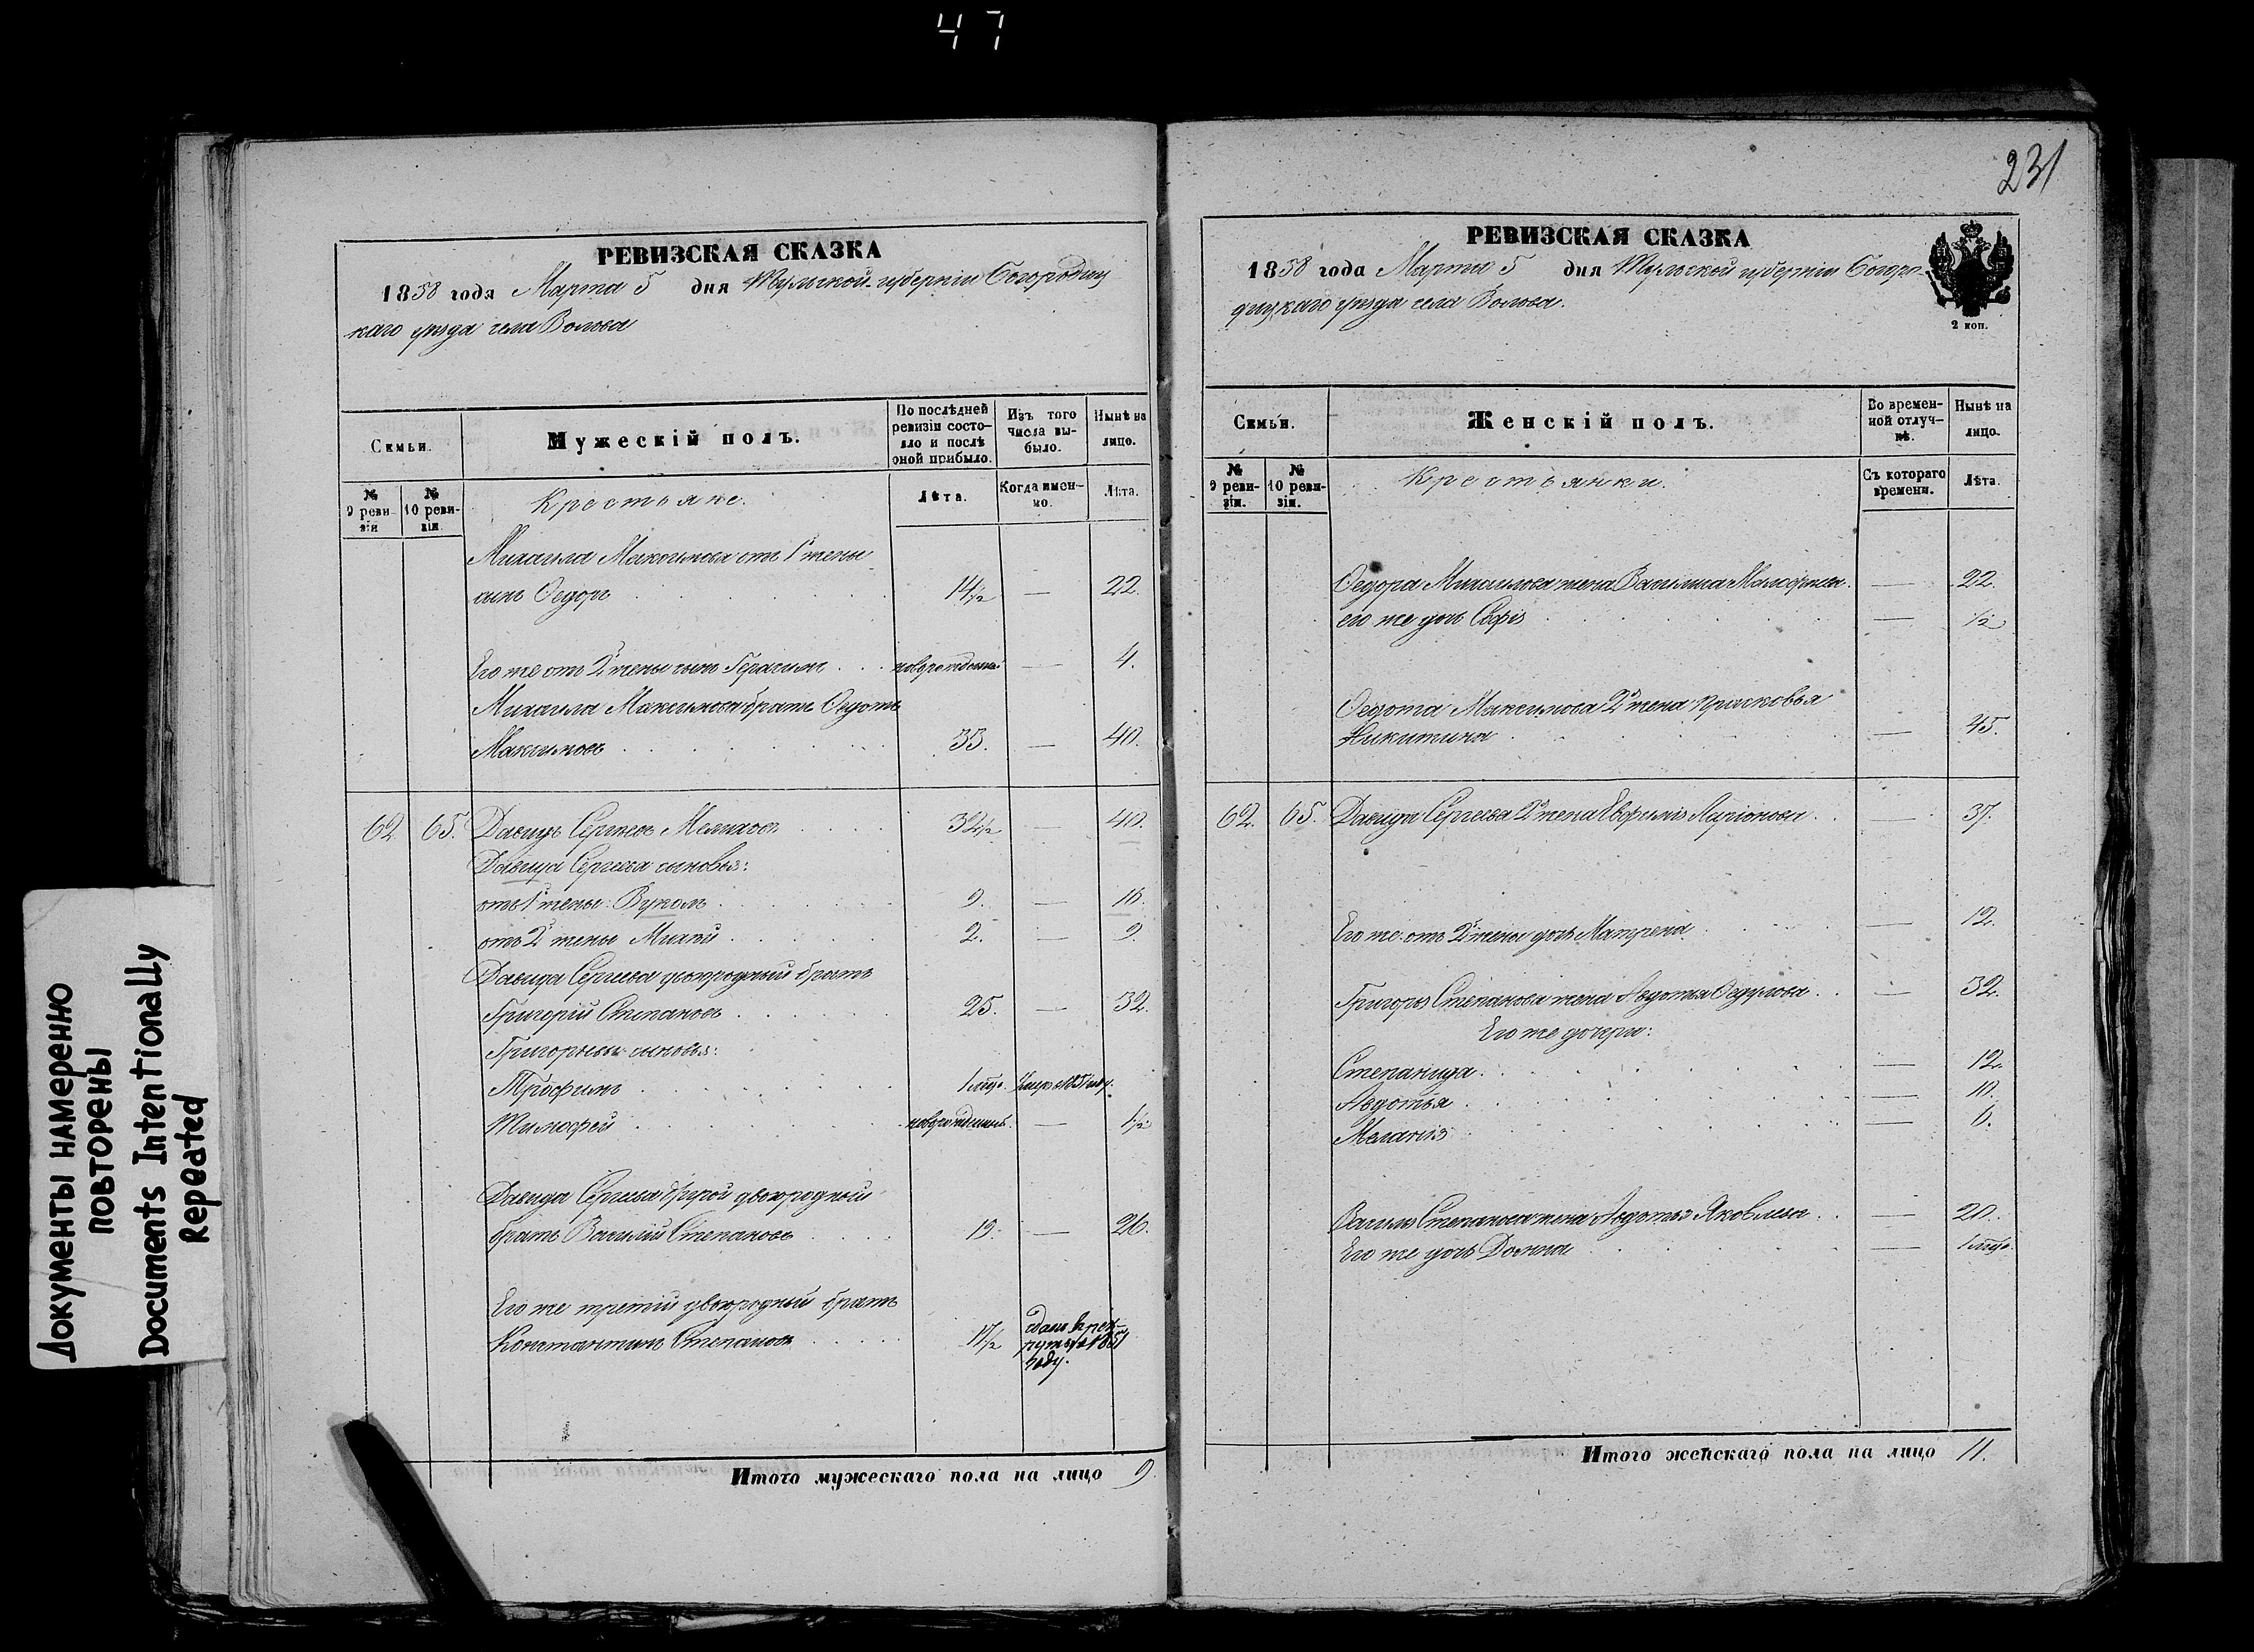 47
Документы намеренно
повторены
Documents Intentionally
Repeated
РЕВИЗСКАЯ СКАЗКА
1858 года Марта 5 дня Тульской губерніи Богородиц
каго уѣзда села Волова
Семьи.
Мужескій полъ.
По послѣдней ревизіи состояло и послѣ оной прибыло.
Изъ того числа выбыло.
Нынѣ на лицо.
№ 9 ревизіи
№ 10 ревизіи.
Крестьяне.
Лѣта.
Когда именно.
Лѣта.
Михаила Максимова отъ 1й жены
сынъ Ѳедоръ 14½ — 22.
Его же отъ 2й жены сынъ Герасимъ новорожденъ — 4.
Михаила Максимова братъ Ѳедотъ
Максимовъ 33. — 40.
62. 65. Давидъ Сергѣевъ Мелиховъ 32½ 40.
Давида Сергѣева сыновья:
отъ 1й жены: Вуколъ 9. — 16.
отъ 2й жены Михей 2. — 9.
Давида Сергѣева двоюродный братъ
Григорій Степановъ 25. — 32.
Григорьевы сыновья:
Трофимъ 1 мѣс. Умеръ 1851 год.
Тимофей новорожденъ. — 1½
Давида Сергѣева другой двоюродный
братъ Василій Степановъ 19. — 26.
Его же третій двоюродный братъ
Константинъ Степановъ 17½ сданъ въ рек-
руты въ 1851
году.
Итого мужескаго пола на лицо 9.
231
РЕВИЗСКАЯ СКАЗКА
1858 года Марта 5 дня Тульской губерніи Богоро-
дицкаго уѣзда села Волова.
2 коп.
Семьи.
Женскій полъ.
Во временной отлучкѣ.
Нынѣ на лицо.
№ 9 ревизіи.
№ 10 ревизіи.
Крестьянки.
Съ котораго времени.
Лѣта.
Ѳедора Михаилова жена Василиса — 22.
его же дочь Софія — ½
Ѳедота Максимова 2я жена Прасковья
Никитина — 45.
62. 65. Давида Сергѣева 2я жена Евфимія Ларіонова — 37.
Его же отъ 2й жены дочь Матрена — 12.
Григорья Степанова жена Авдотья Ѳедулова — 32.
Его же дочери:
Степанида — 12.
Авдотья — 10.
Меланія — 6.
Василья Степанова жена Авдотья Яковлева — 20.
Его же дочь Домна — 1 мѣс.
Итого женскаго пола на лицо 11.